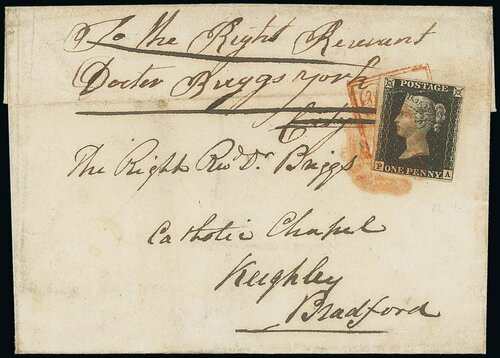 To the Right Reverant
Docter Briggs york
POSTAGE
P ONE PENNY A
The Right Revd Dr Briggs
Catholic Chapel
Keighley
Bradford